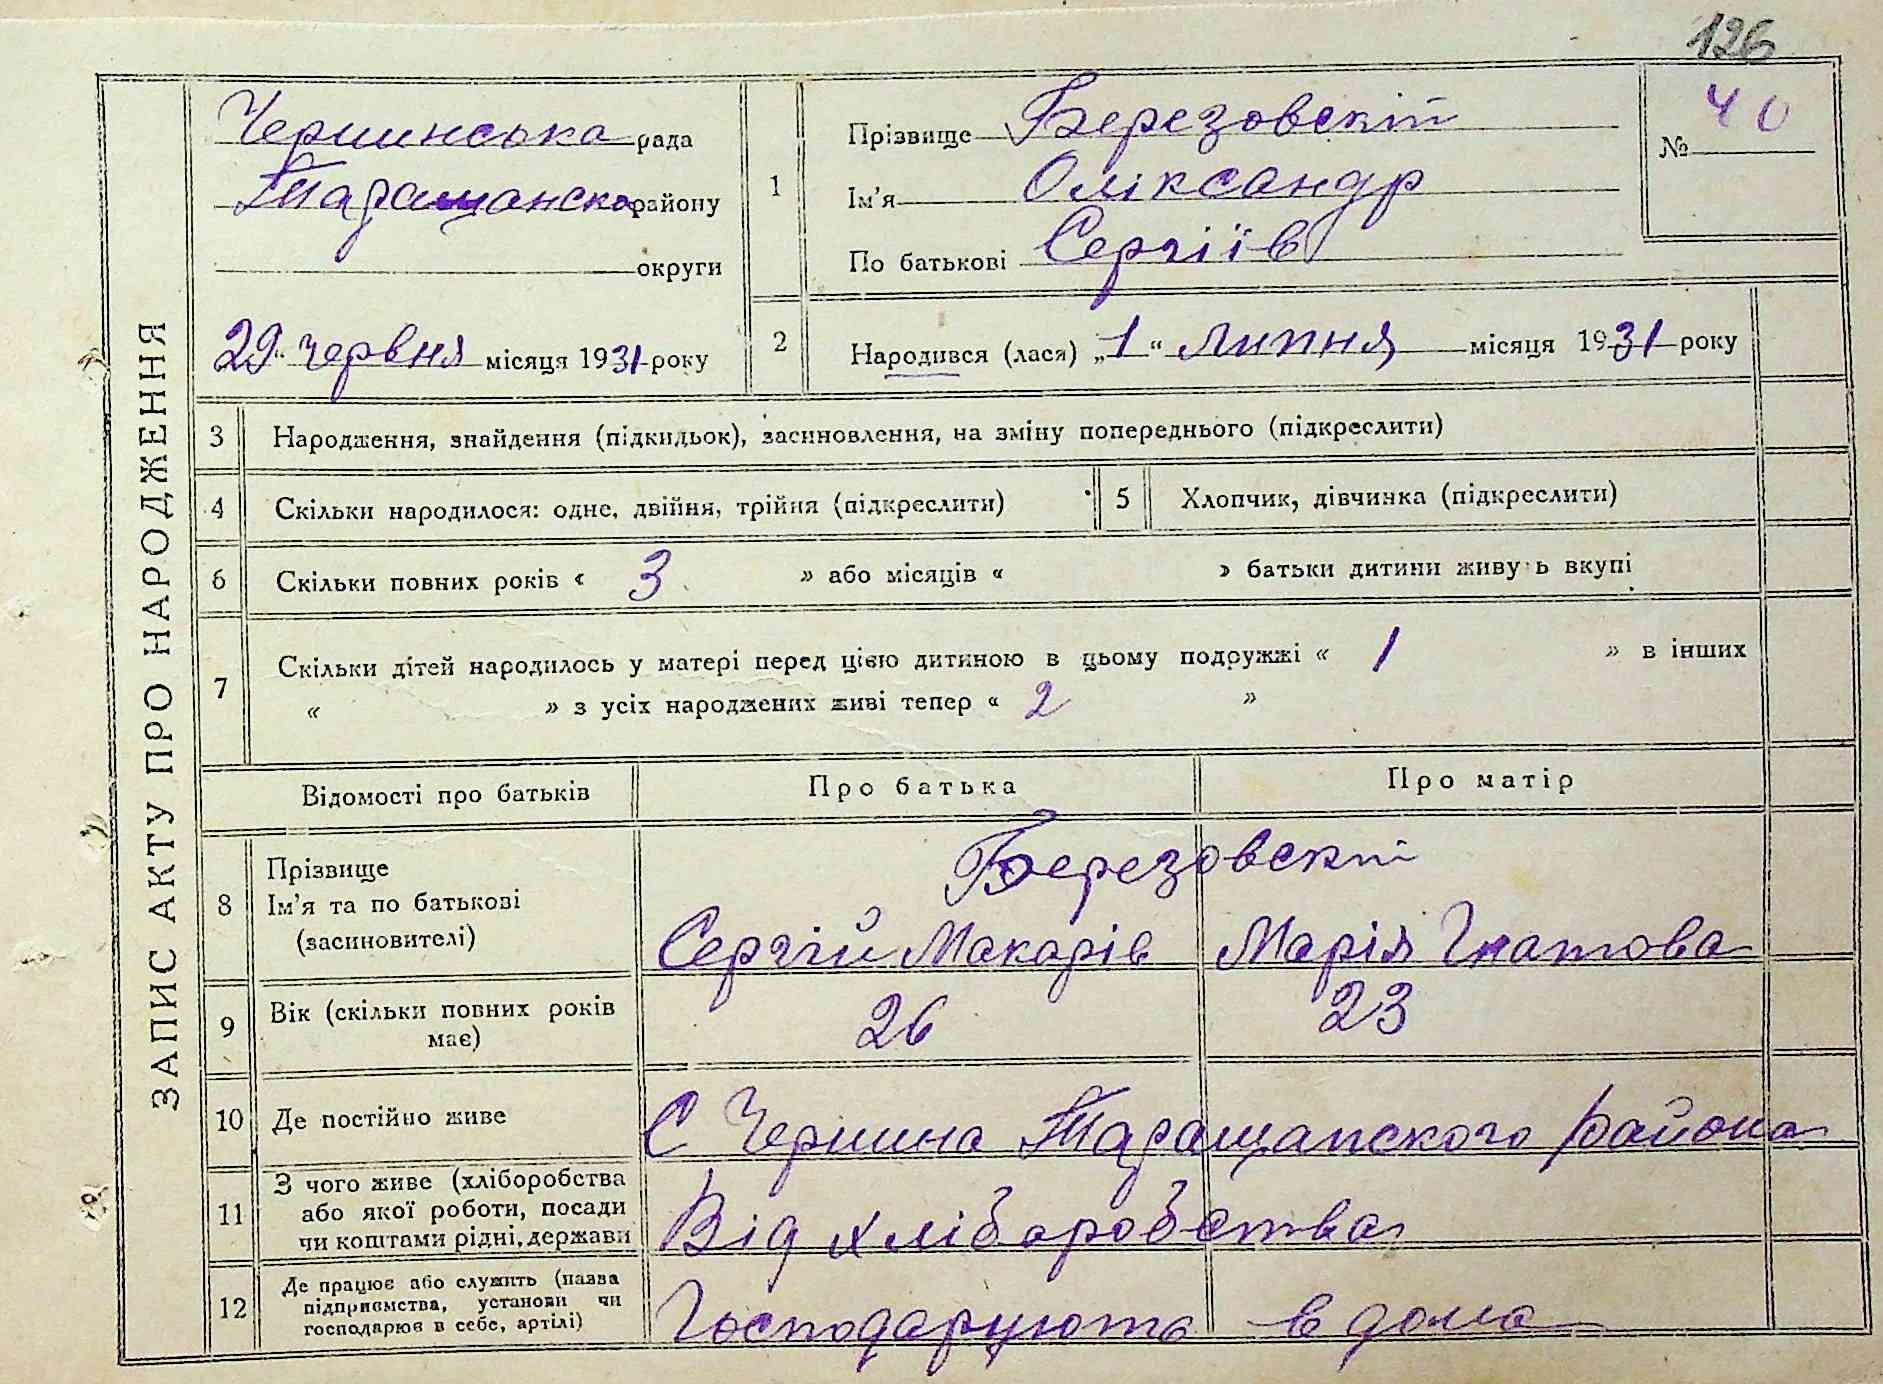 126
ЗАПИС АКТУ ПРО НАРОДЖЕННЯ
Чершинська рада
Таращанско району
округи
29 " червня місяця 1931 року
1
Прізвище Березовскій
Ім'я Оліксандр
По батькові Сергіїв
№ 40
2 Народився (лася) „1“ липня місяця 1931 року
3 Народження, знайдення (підкидьок), засиновлення, на зміну попереднього (підкреслити)
4 Скільки народилося: одне, двійня, трійня (підкреслити)
5 Хлопчик, дівчинка (підкреслити)
6 Скільки повних років « 3 » або місяців « » батьки дитини живуть вкупі
7 Скільки дітей народилось у матері перед цією дитиною в цьому подружжі « 1 » в інших
« » з усіх народжених живі тепер « 2 »
Відомості про батьків Про батька Про матір
8 Прізвище
Ім'я та по батькові
(засиновителі)
Березовскі
Сергій Макарів Марія Гнатова
9 Вік (скільки повних років
має)
26 23
10 Де постійно живе С Чершина Таращанского района
11 З чого живе (хліборобства
або якої роботи, посади
чи коштами рідні, держави
Від хліборобства
12 Де працює або служить (назва
підприємства, установи чи
господарює в себе, артілі)
Господарують в дома